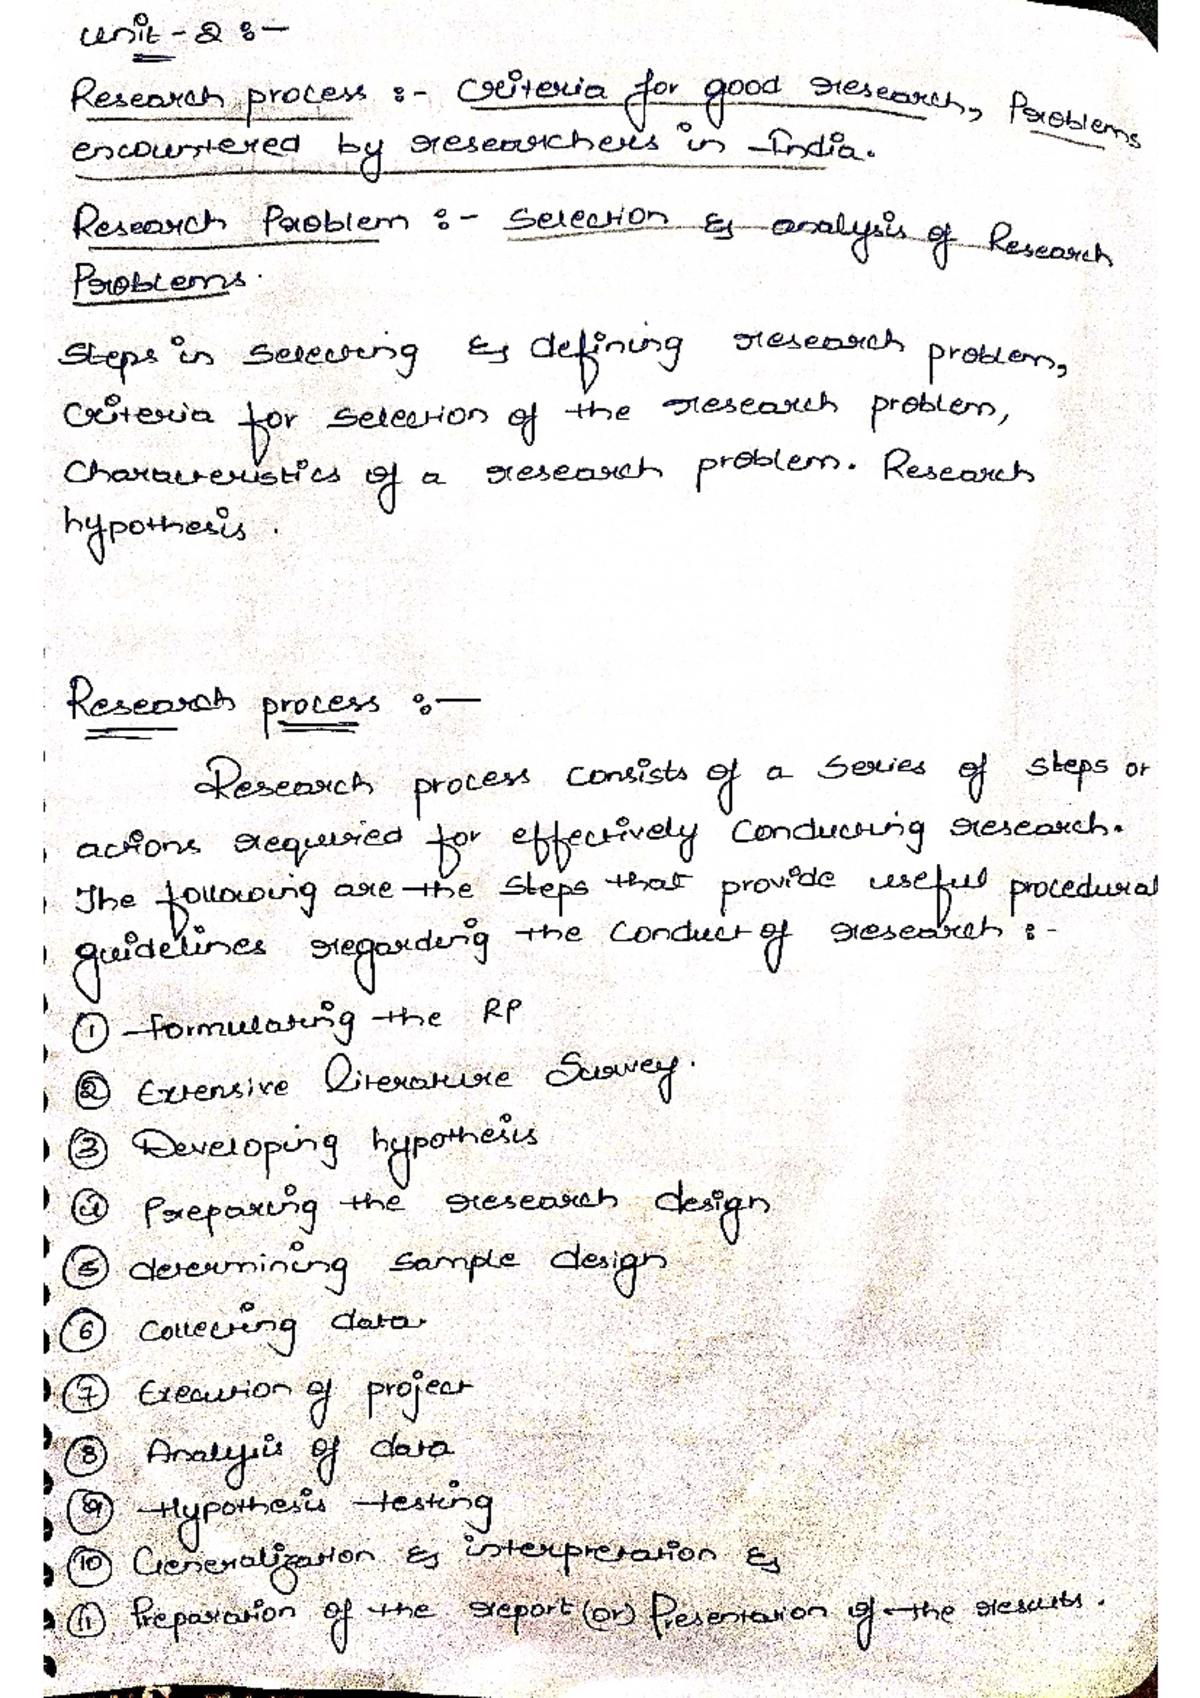 Unit - 2 :-
Research process :- Criteria for good research, Problems
encountered by researchers in India.
Research Problem :- Selection & analysis of Research
Problems.
Steps in selecting & defining research problem,
Criteria for selection of the research problem,
Characteristics of a research problem. Research
hypothesis.
Research process :-
Research process consists of a series of steps or
actions required for effectively conducting research.
The following are the steps that provide useful procedural
guidelines regarding the conduct of research :-
① formulating the RP
② Extensive literature Survey.
③ Developing hypothesis
④ Preparing the research design
⑤ determining sample design
⑥ Collecting data.
⑦ Execution of project
⑧ Analysis of data
⑨ Hypothesis testing
⑩ Generalization & interpretation &
⑪ Preparation of the report (or) Presentation of the results.